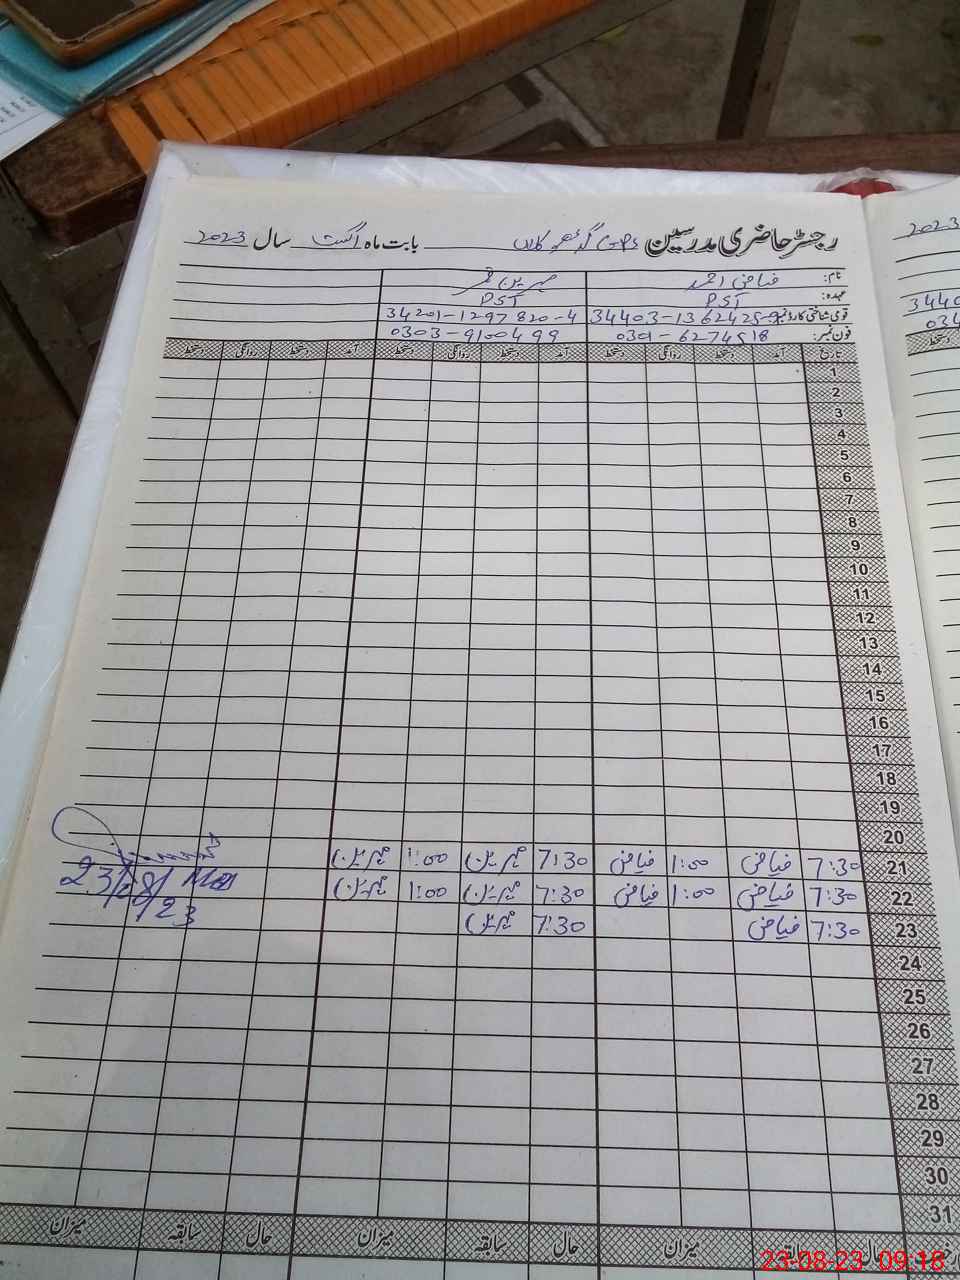 رجسٹر حاضری مدرسین GPS بابت ماہ اگست سال 2023
نام: فیاض احمد
عہدہ: PST PST
قومی شناختی کارڈ نمبر 34403-1362425-9 34201-1297820-4
فون نمبر: 0301-6274518 0303-9100499
تاریخ آمد دستخط روانگی دستخط آمد دستخط روانگی دستخط آمد دستخط روانگی دستخط
1
2
3
4
5
6
7
8
9
10
11
12
13
14
15
16
17
18
19
20
21 7:30 فیاض 1:00 فیاض 7:30 مہرین 1:00 مہرین
22 7:30 فیاض 1:00 فیاض 7:30 مہرین 1:00 مہرین
23 7:30 فیاض 7:30 مہرین
23/08/23
24
25
26
27
28
29
30
31
حال سابقہ میزان حال سابقہ میزان حال سابقہ میزان
2023
3440
034
دستخط
23-08-23 09:18